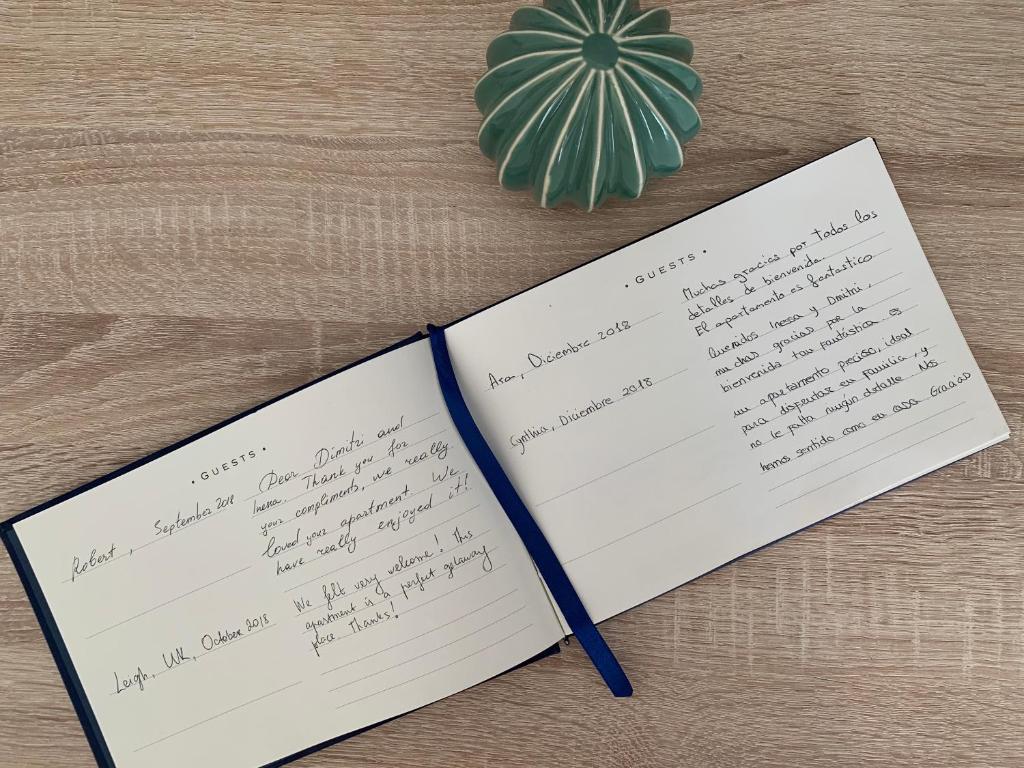 • GUESTS •
Robert, September 2018
Dear Dimitri and
Inesa. Thank you for
your compliments, we really
loved your apartment. We
have really enjoyed it!
Leigh, UK, October 2018
We felt very welcome! This
apartment is a perfect getaway
place. Thanks!
• GUESTS •
Ara, Diciembre 2018
Muchas gracias por todos los
detalles de bienvenida.
El apartamento es fantastico
Cynthia, Diciembre 2018
Queridos Inesa y Dmitri,
muchas gracias por la
bienvenida tan fantástica es
un apartamento preciso, ideal
para disfrutar en familia, y
no le falta ningún detalle. Nos
hemos sentido como en casa Gracias